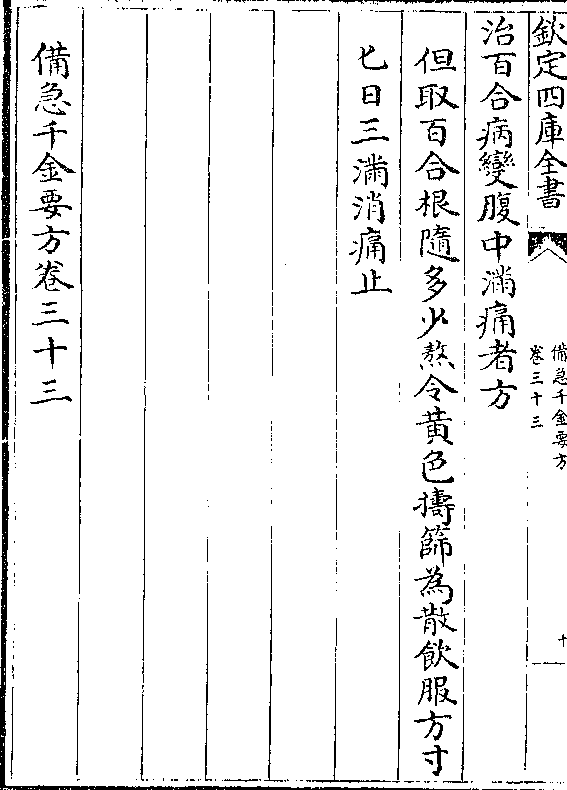 欽定四庫全書
備急千金要方
卷三十三
十
治百合病變腹中滿痛者方
但取百合根隨多少熬令黄色擣篩為散飲服方寸
匕日三滿消痛止
備急千金要方卷三十三